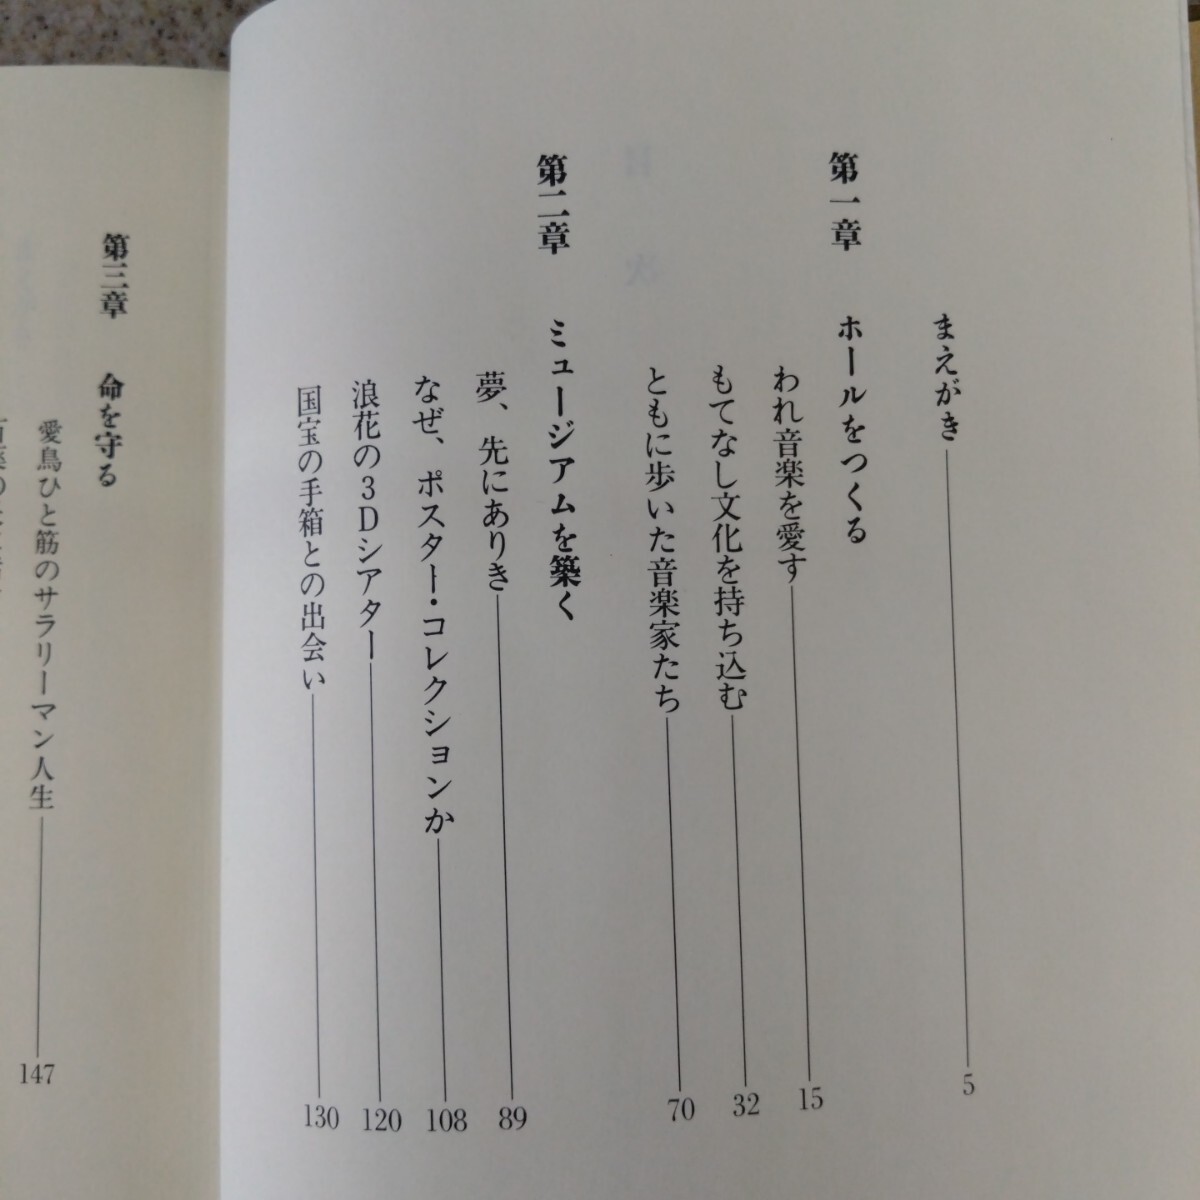 まえがき 5
第一章 ホールをつくる
われ音楽を愛す 15
もてなし文化を持ち込む 32
ともに歩いた音楽家たち 70
第二章 ミュージアムを築く
夢、先にありき 89
なぜ、ポスター・コレクションか 108
浪花の3Dシアター 120
国宝の手箱との出会い 130
第三章 命を守る
愛鳥ひと筋のサラリーマン人生 147